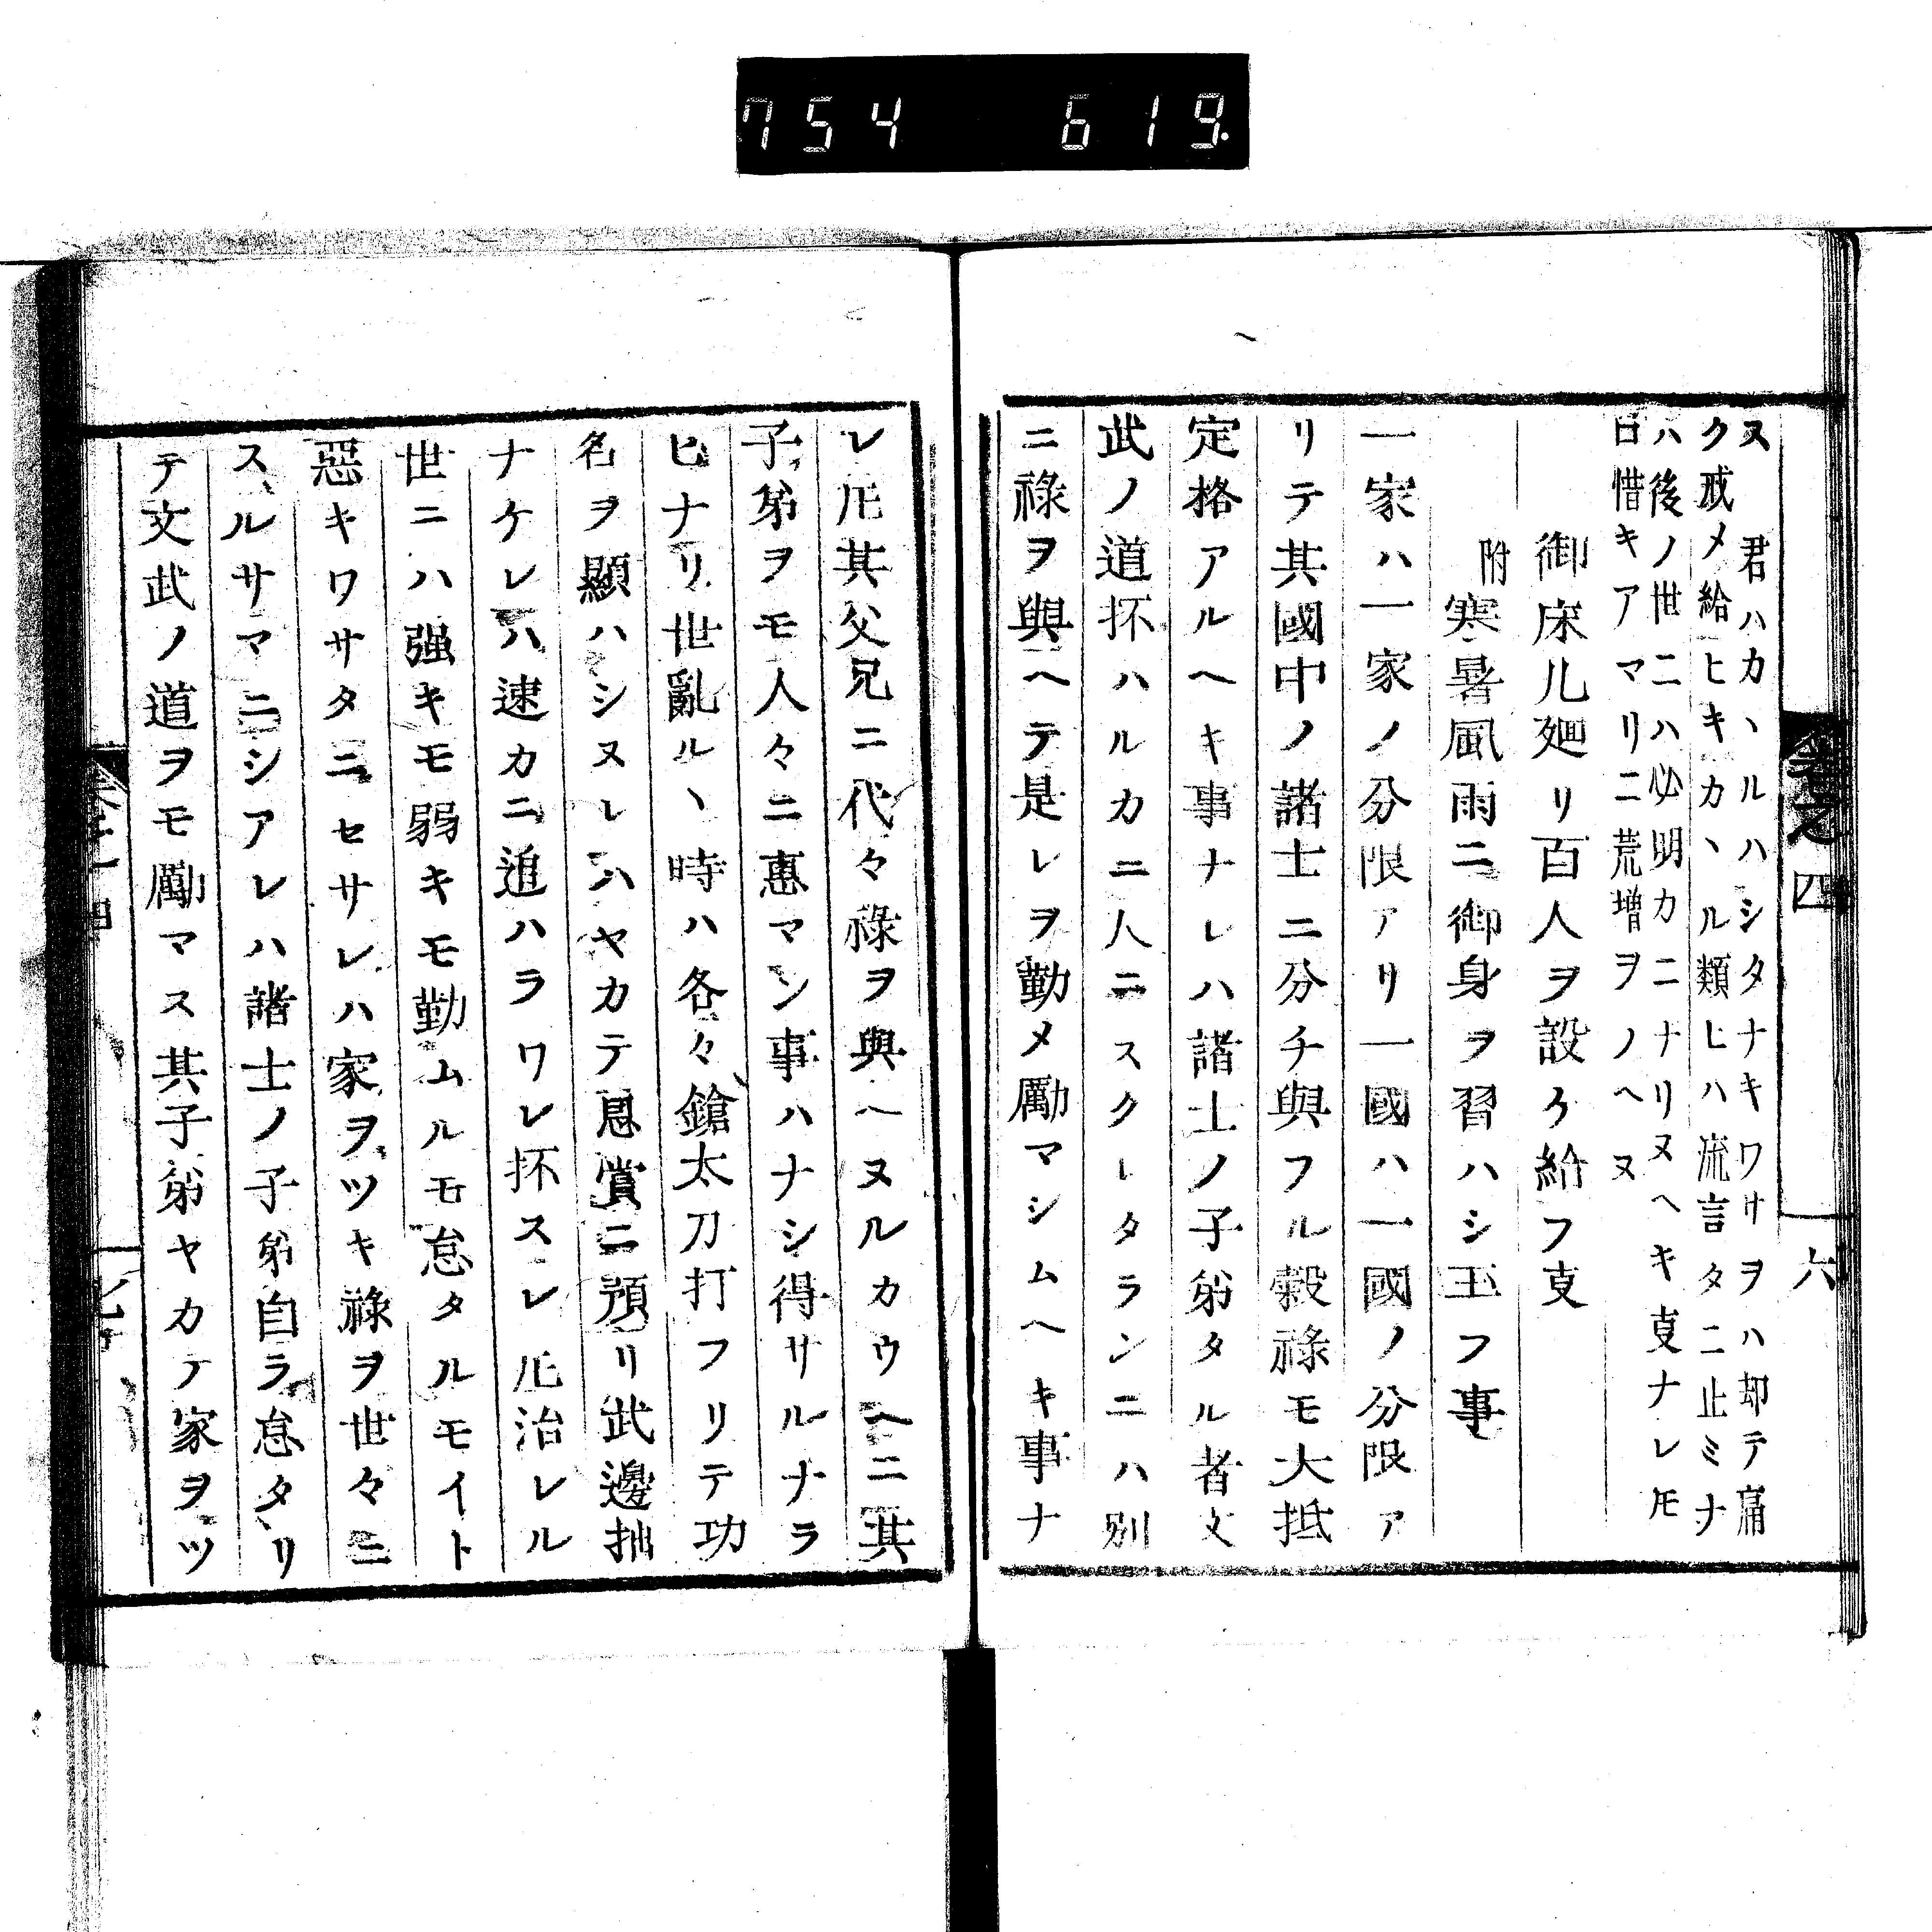 754 619.
卷之四 六
ヌ 君ハカヽルハシタナキワサヲハ却テ痛
ク戒メ給ヒキカヽル類ヒハ流言タニ止ミナ
ハ後ノ世ニハ必明カニナリヌヘキ叓ナレ𪜈
口惜キアマリニ荒増ヲノヘヌ
御床几廻リ百人ヲ設ケ給フ叓
附寒暑風雨ニ御身ヲ習ハシ玉フ事
一家ハ一家ノ分限アリ一國ハ一國ノ分限ア
リテ其國中ノ諸士ニ分チ與フル穀祿モ大抵
定格アルヘキ事ナレハ諸士ノ子弟タル者文
武ノ道抔ハルカニ人ニスクレタランニハ別
ニ祿ヲ與ヘテ是レヲ勤メ勵マシムヘキ事ナ
レ𪜈其父兄ニ代々祿ヲ與ヘヌルカウヘニ其
子弟ヲモ人々ニ惠マン事ハナシ得サルナラ
ヒナリ世亂ルヽ時ハ各々鎗太刀打フリテ功
名ヲ顯ハシヌレハヤカテ恩賞ニ預リ武邊拙
ナケレハ速カニ追ハラワレ抔スレ𪜈治レル
世ニハ强キモ弱キモ勤ムルモ怠タルモイト
惡キワサタニセサレハ家ヲツキ祿ヲ世々ニ
スルサマニシアレハ諸士ノ子弟自ラ怠タリ
テ文武ノ道ヲモ勵マス其子弟ヤカテ家ヲツ